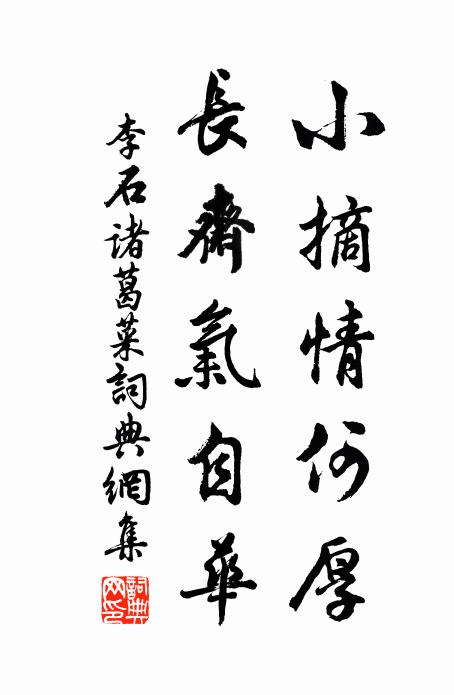 小摘情何厚
長齋氣自華
李石諸葛菜詞典網集
詞典網印